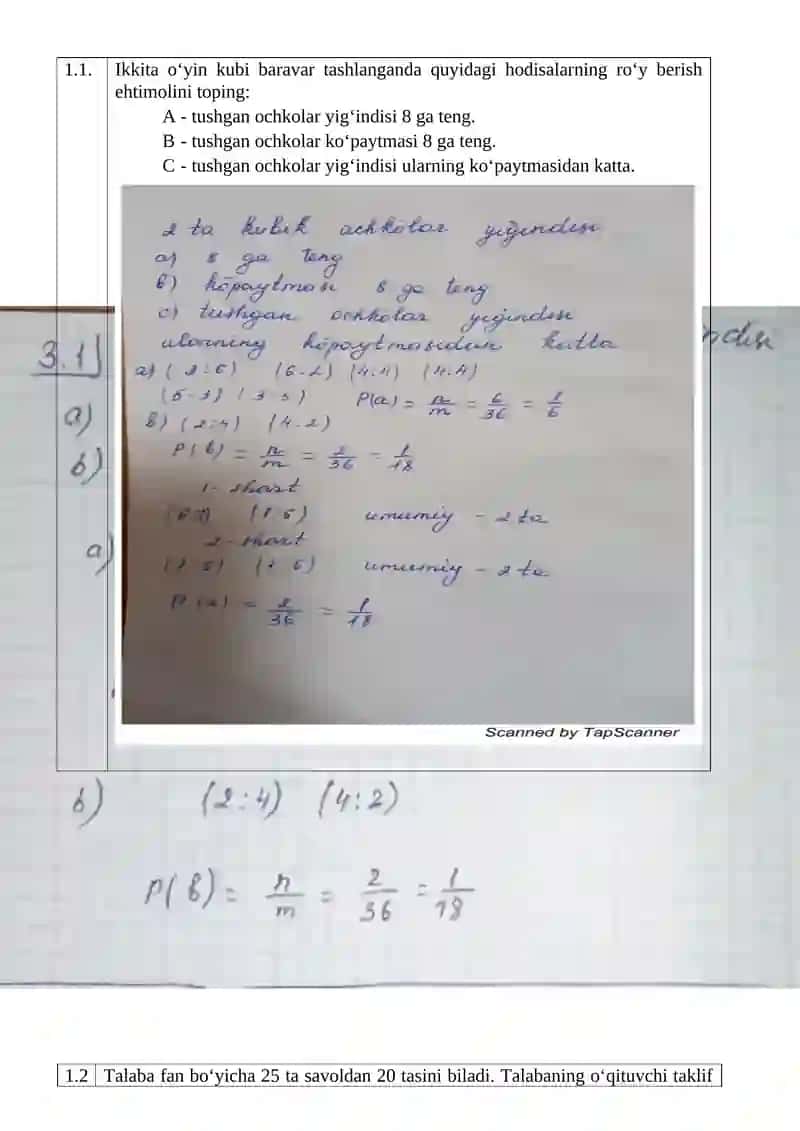 1.1. Ikkita o‘yin kubi baravar tashlanganda quyidagi hodisalarning ro‘y berish
ehtimolini toping:
A - tushgan ochkolar yig‘indisi 8 ga teng.
B - tushgan ochkolar ko‘paytmasi 8 ga teng.
C - tushgan ochkolar yig‘indisi ularning ko‘paytmasidan katta.
2 ta kubik achkolar yig'indisi
a) 8 ga teng
b) ko'paytmasi 8 ga teng
c) tushgan ochkolar yig'indisi
ularning ko'paytmasidan katta
a) (2:6) (6-2) (4:4) (4.4)
(5-3) (3-5) P(a) = n/m = 6/36 = 1/6
b) (2:4) (4-2)
P(b) = n/m = 2/36 = 1/18
1- shart
umumiy - 2 ta
2- shart
umumiy - 2 ta
= 2/36 = 1/18
Scanned by TapScanner
3.1]
a)
b)
a)
b) (2:4) (4:2)
P(b) = n/m = 2/36 = 1/18
1.2 Talaba fan bo‘yicha 25 ta savoldan 20 tasini biladi. Talabaning o‘qituvchi taklif